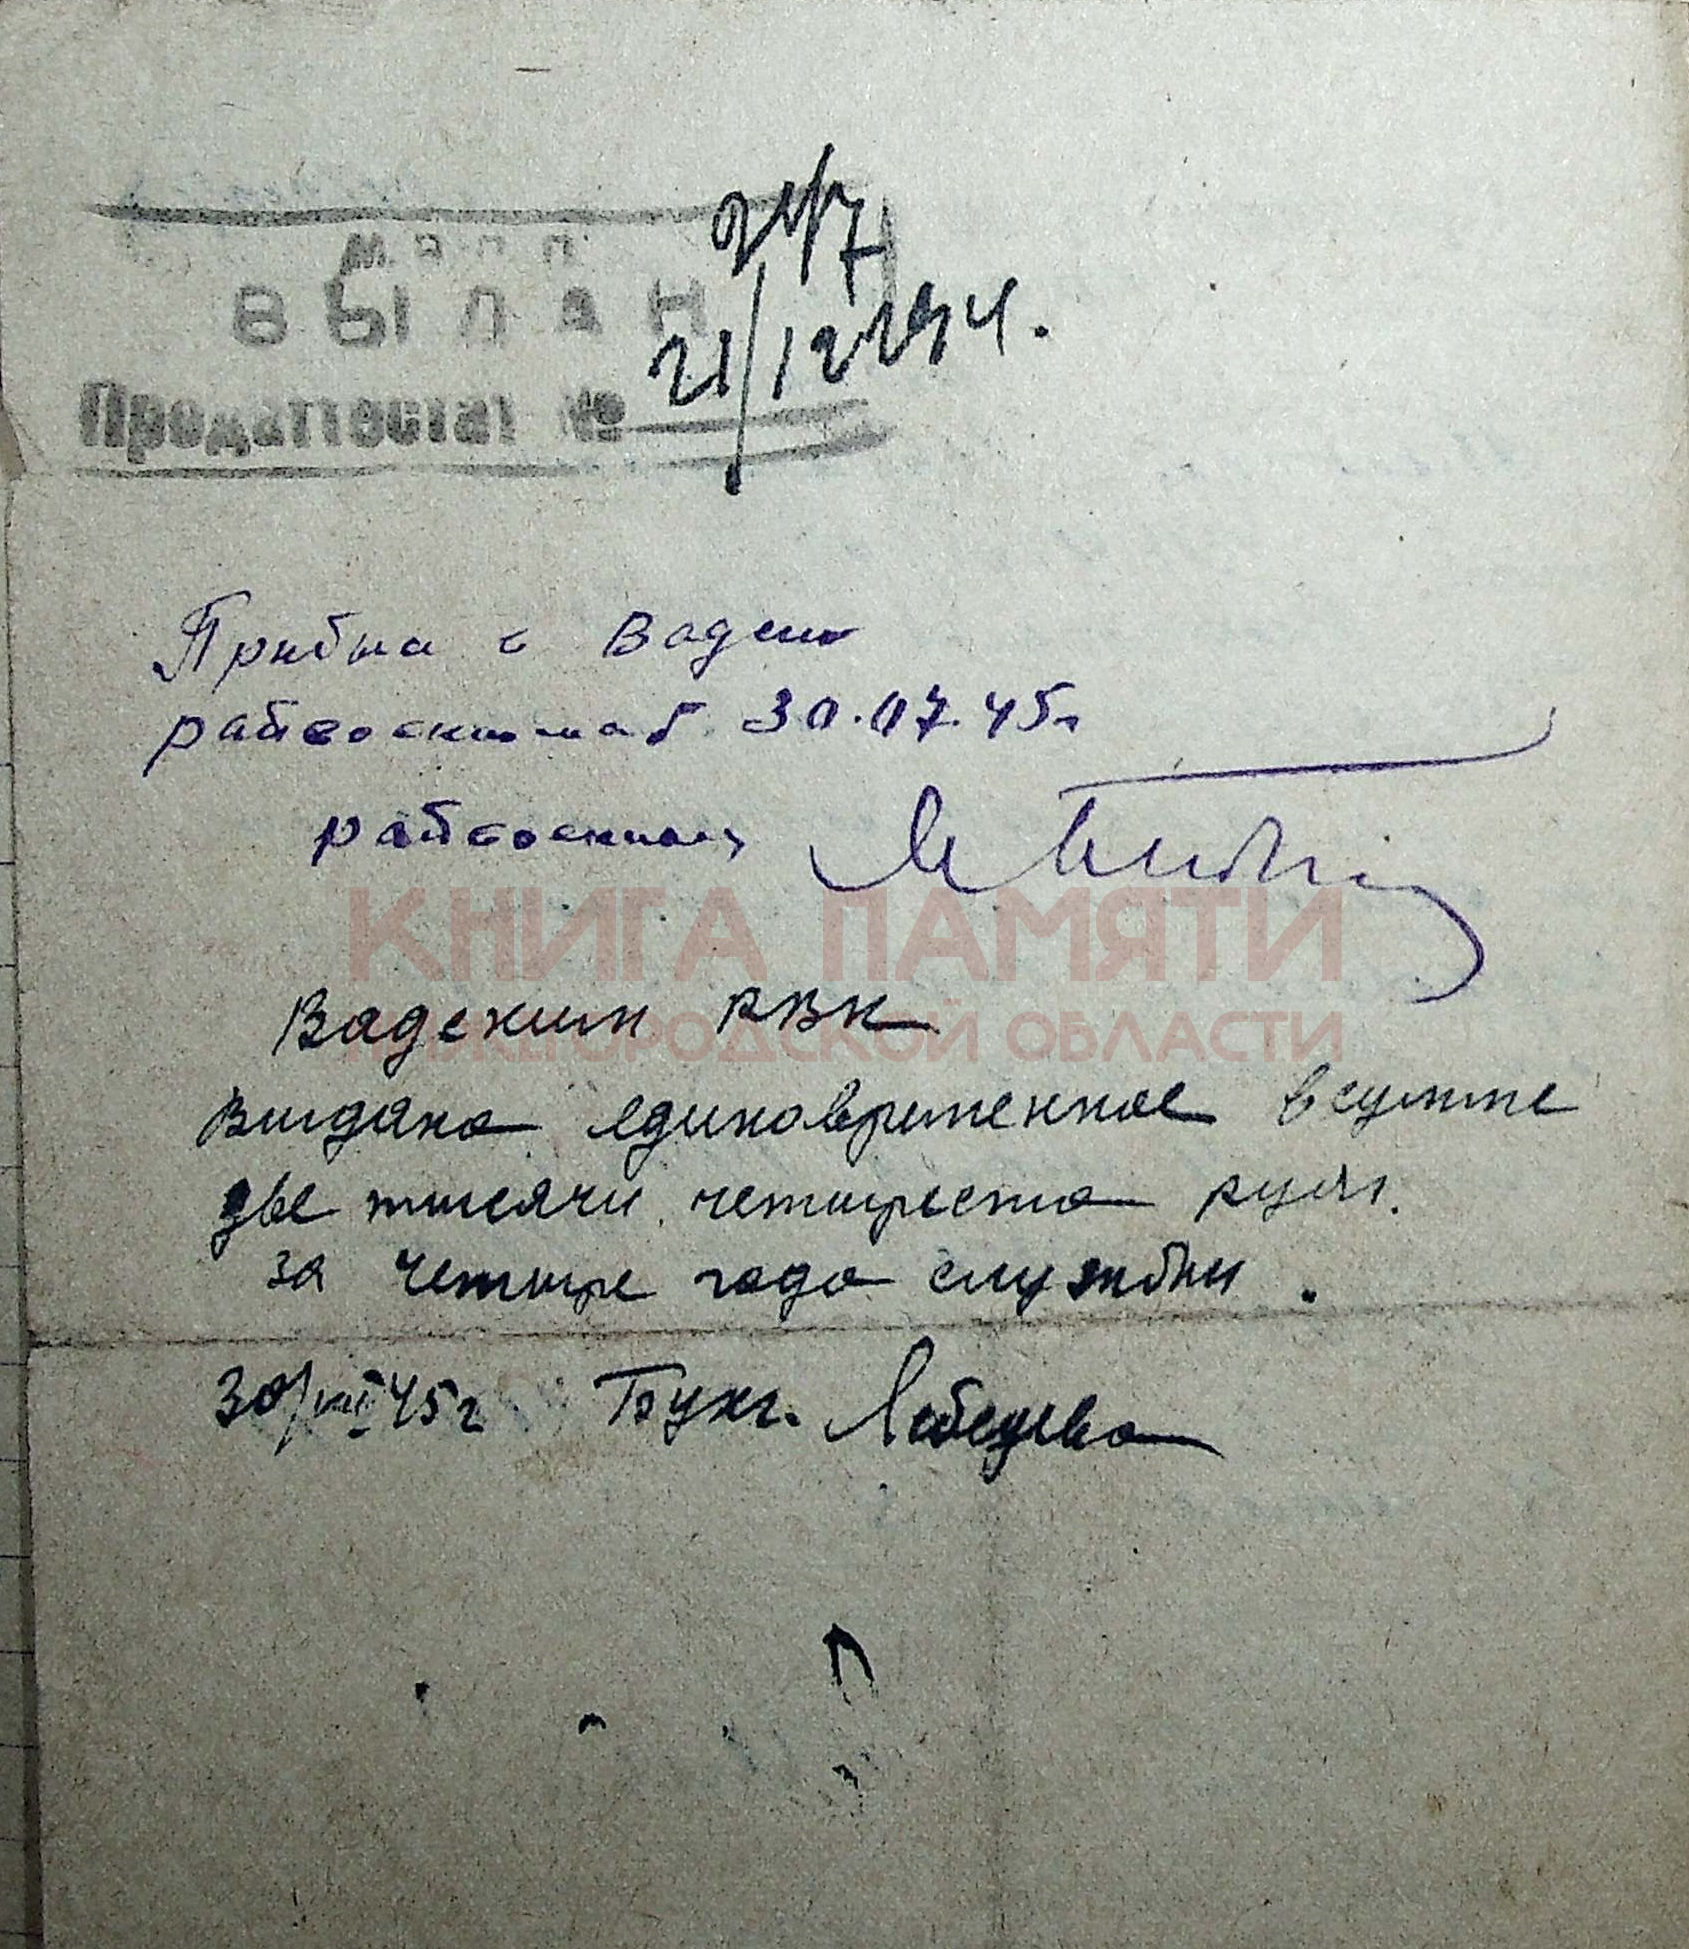 ВЫДАН
Продаттестат №
Прибыл в Вадск
райвоенкомат 30.07.45г
райвоенком
КНИГА ПАМЯТИ
НИЖЕГОРОДСКОЙ ОБЛАСТИ
Вадским РВК
Выдано единовременное в сумме
две тысячи четыреста рубл.
за четыре года службы.
30/VII 45г Бухг. Лебедева